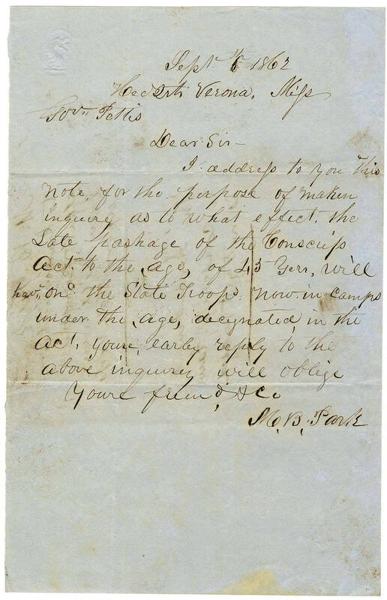 Sept 16 1862
Head Qrts Verona, Miss
Gov'n Pettis
Dear Sir -
I address to you this
note, for the purpose of maken
inquiry as to what effect, the
Late passage of the Conscrip
Act. to the age, of 45 Yers, will
hav, on the State Troops now in camps
under the age, decignated in the
Act, your, early reply to the
above inquiry will oblige
Yours friend &c
M. B. Park